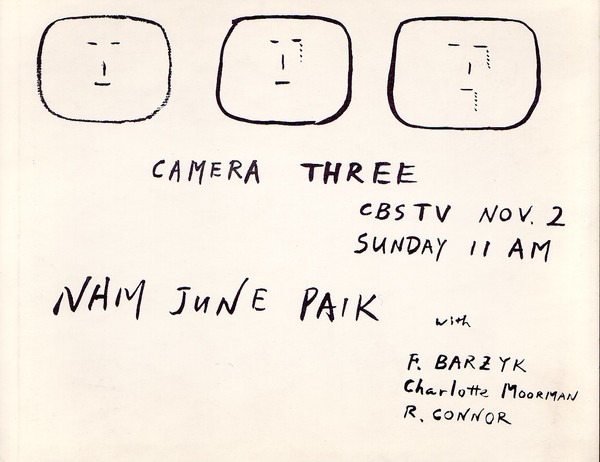 CAMERA THREE
CBS TV NOV. 2
SUNDAY 11 AM
NAM JUNE PAIK
with
F. BARZYK
Charlotte MOORMAN
R. CONNOR